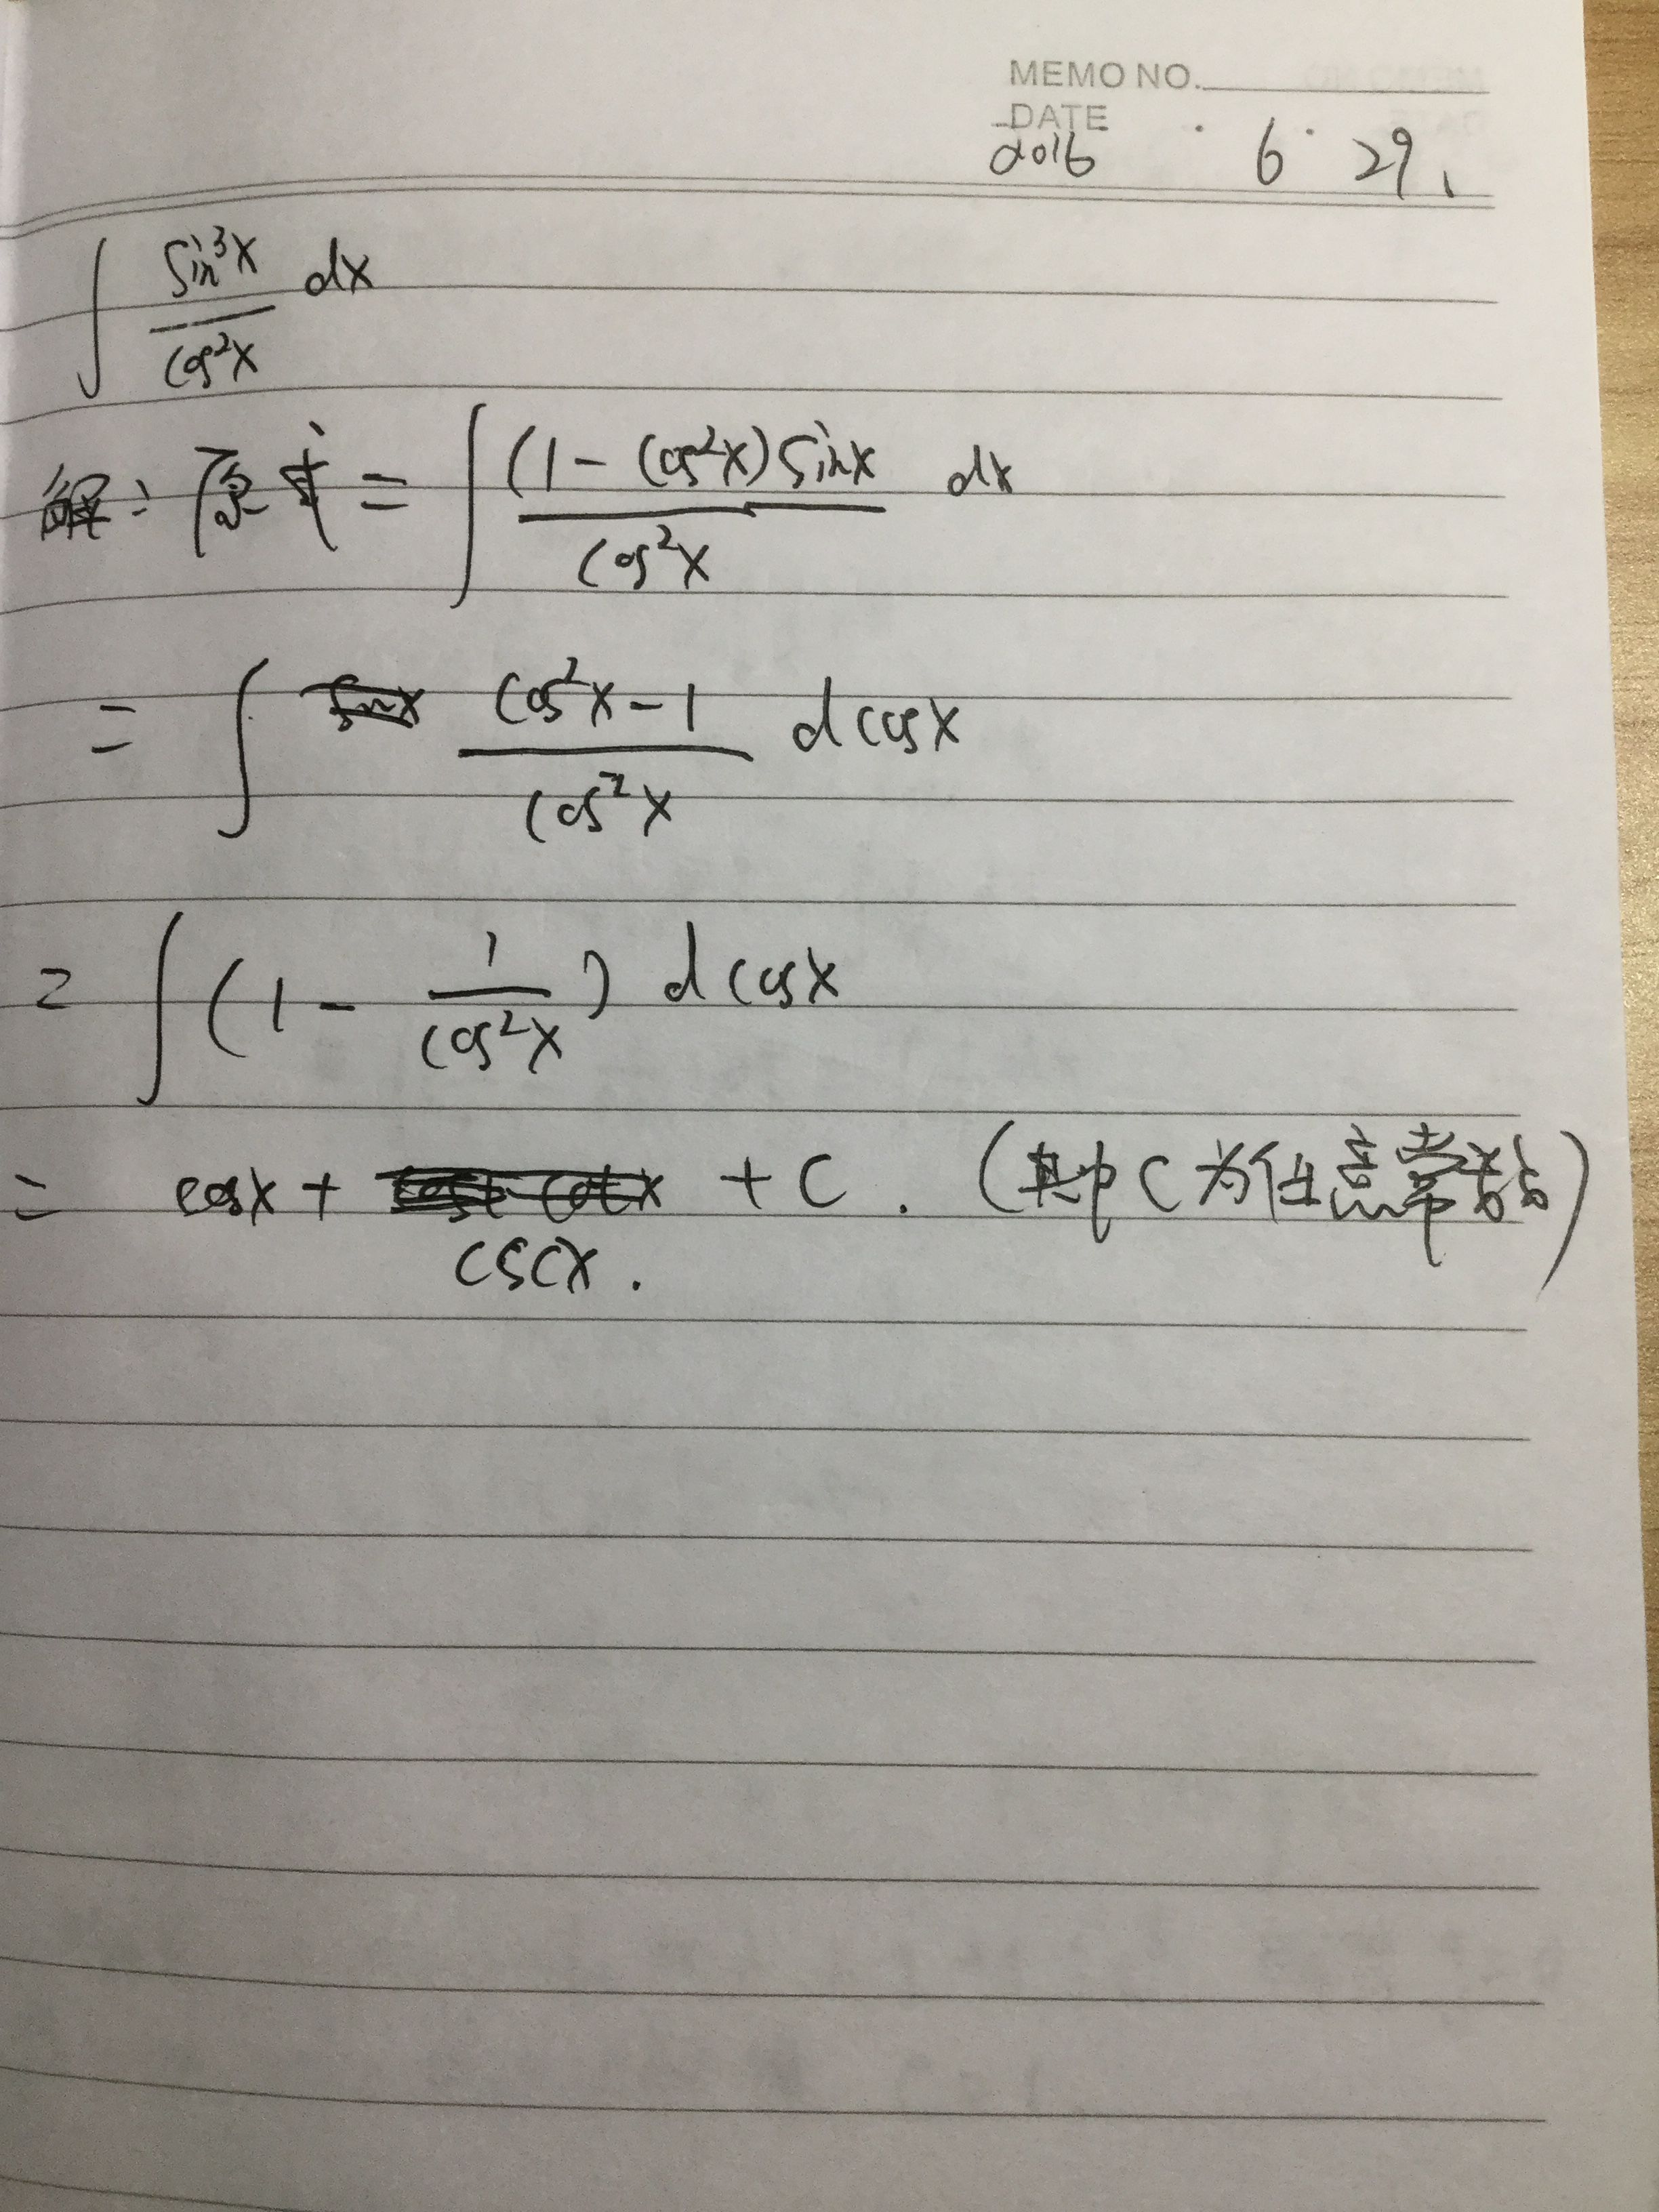 MEMO NO.
DATE
2016 · 6 · 29.
∫ sin³x / cos²x dx
解：原式 = ∫ (1 - cos²x) sinx / cos²x dx
= ∫ cos²x - 1 / cos²x d cosx
= ∫ (1 - 1 / cos²x) d cosx
= cosx + cscx. + C . (其中 C 为任意常数)